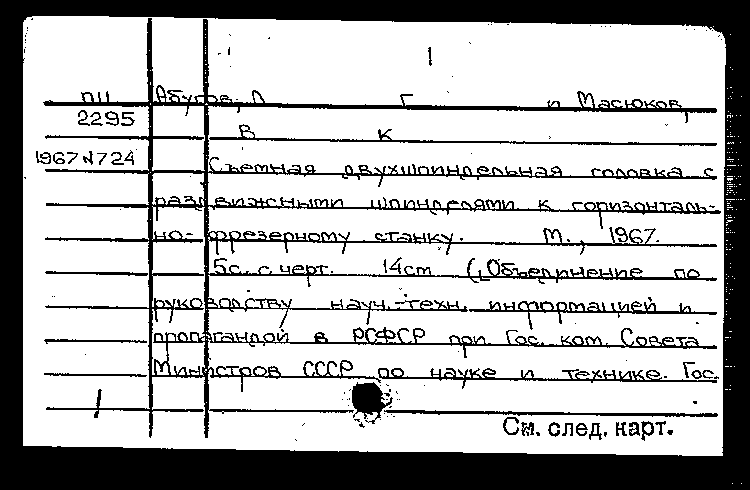 1
П11 Абугов, Л Г и Масюков,
2295
В К
1967 N724 Съемная двухшпиндельная головка с
раздвижными шпинделями к горизонталь-
но-фрезерному станку. М., 1967.
5с. с черт. 14см (Объединение по
руководству науч.-техн. информацией и
пропагандой в РСФСР при Гос. ком. Совета
Министров СССР по науке и технике. Гос.
1
См. след. карт.